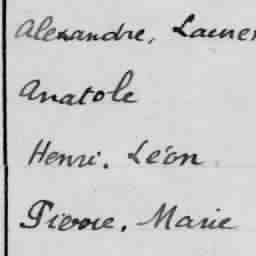 Alexandre, Lauren
Anatole
Henri. Léon
Pierre. Marie